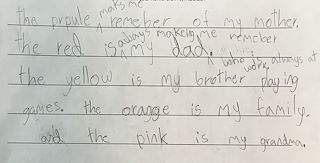 makes me
the prpule ^ remeber of my mother.
always making me remeber
the red is ^ my dad. ^ who is always at work.
the yellow is my brother playing
games. the orange is my family.
and the pink is my grandma.